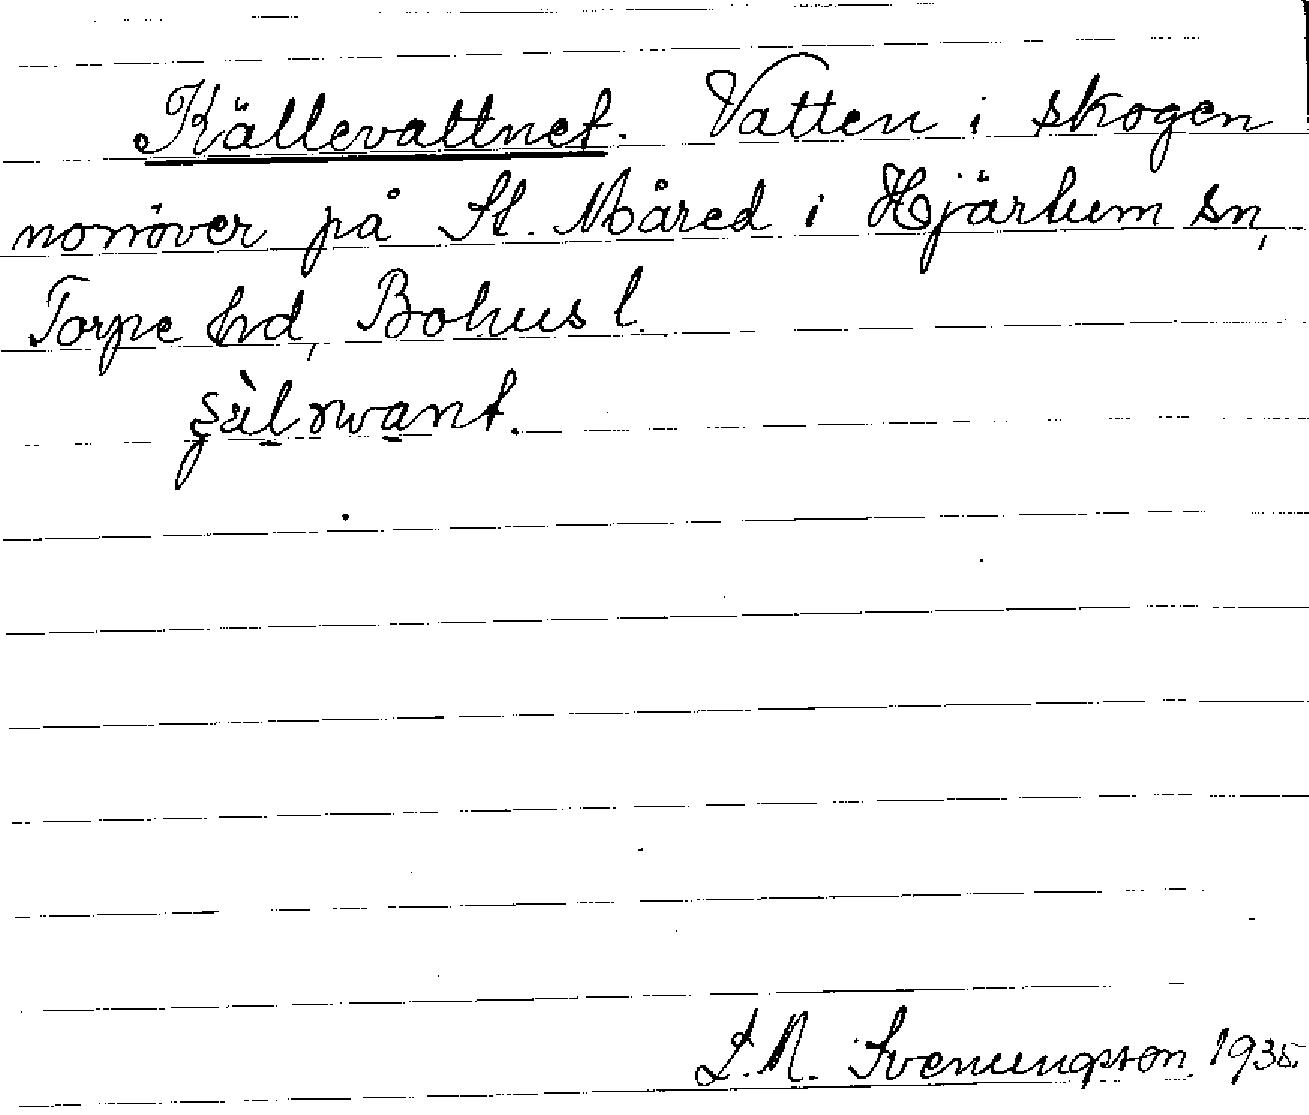 Källevattnet. Vatten i skogen
norröver på St. Måred i Hjärtum sn,
Torpe hd, Bohusl.
L. M. Svenungsson 1935.